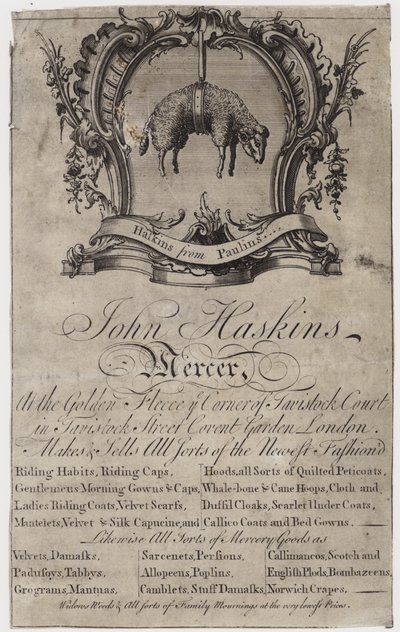 Haskins from Paulins....
John Haskins
Mercer,
At the Golden Fleece ye Corner of Tavistock Court
in Tavistock Street Covent Garden London.
Makes & Sells All Sorts of the Newest Fashion'd
Riding Habits, Riding Caps,
Gentlemens Morning Gowns & Caps,
Ladies Riding Coats, Velvet Scarfs,
Mantelets, Velvet & Silk Capucine, and
Hoods, all Sorts of Quilted Peticoats,
Whale-bone & Cane Hoops, Cloth and
Duffil Cloaks, Scarlet Under Coats,
Callico Coats and Bed Gowns.
Likewise All Sorts of Mercery Goods as
Velvets, Damasks,
Padusoys, Tabbys,
Grograms, Mantuas,
Sarcenets, Persions,
Allopeens, Poplins,
Camblets, Stuff Damasks,
Callimancos, Scotch and
English Plods, Bombazeens,
Norwich Crapes,
Widows Weeds & All sorts of Family Mournings at the very lowest Prices.